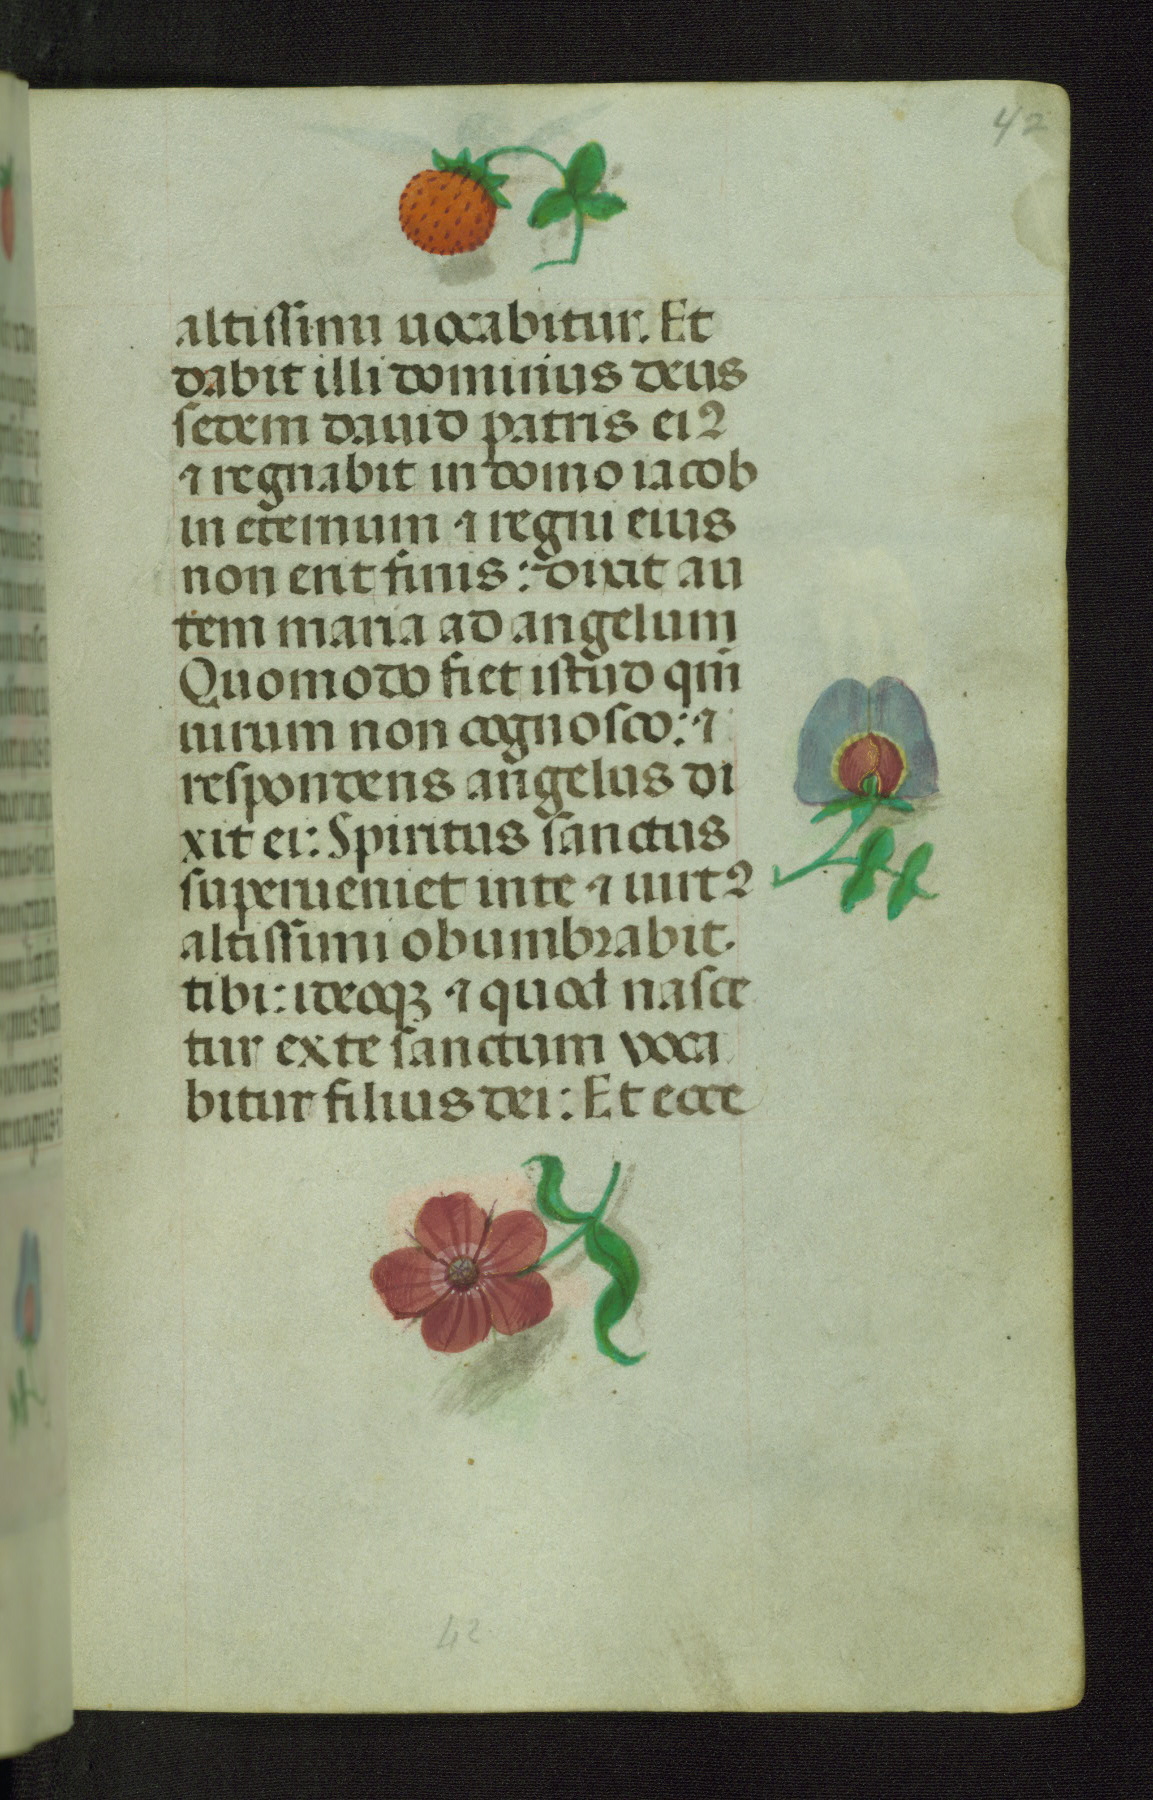 42
altissimi uocabitur. Et
dabit illi dominus deus
sedem dauid patris ei2
⁊ regnabit in domo iacob
in eternum ⁊ regni eius
non erit finis: dixit au
tem maria ad angelum
Quomodo fiet istud qm̄
uirum non cognosco: ⁊
respondens angelus di
xit ei: Spiritus sanctus
superueniet inte ⁊ uirt2
altissimi obumbrabit.
tibi: ideoqꝫ ⁊ quod nasce
tur exte sanctum voca
bitur filius dei: Et ecce
42